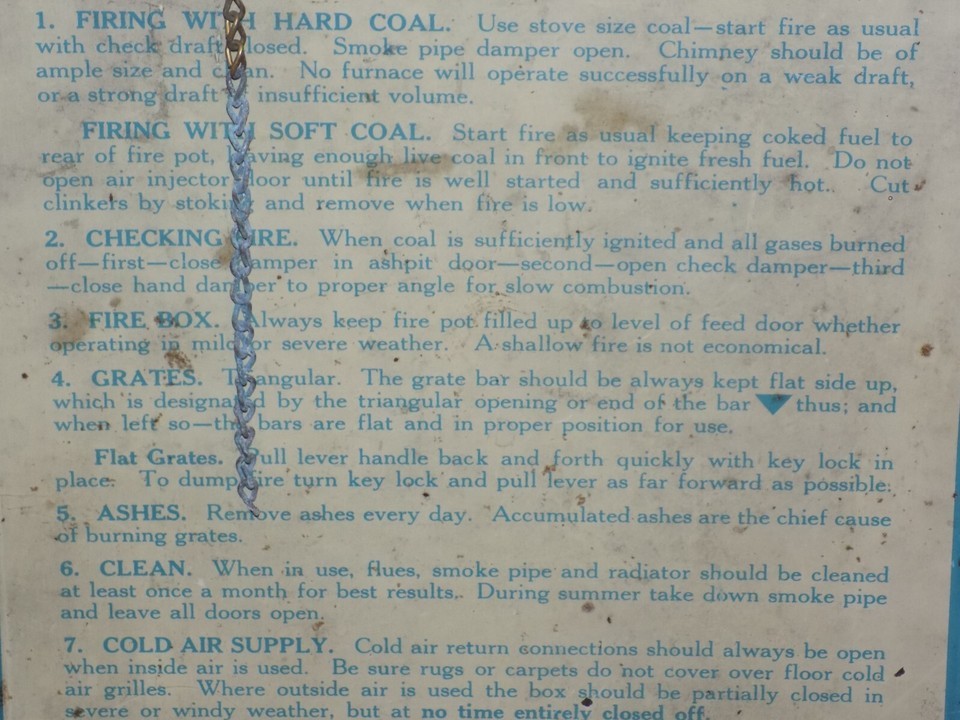 1. FIRING WITH HARD COAL. Use stove size coal—start fire as usual
with check draft closed. Smoke pipe damper open. Chimney should be of
ample size and clean. No furnace will operate successfully on a weak draft,
or a strong draft insufficient volume.
FIRING WITH SOFT COAL. Start fire as usual keeping coked fuel to
rear of fire pot, leaving enough live coal in front to ignite fresh fuel. Do not
open air injector door until fire is well started and sufficiently hot. Cut
clinkers by stoking and remove when fire is low.
2. CHECKING FIRE. When coal is sufficiently ignited and all gases burned
off—first—close damper in ashpit door—second—open check damper—third
—close hand damper to proper angle for slow combustion.
3. FIRE BOX. Always keep fire pot filled up to level of feed door whether
operating in mild or severe weather. A shallow fire is not economical.
4. GRATES. Triangular. The grate bar should be always kept flat side up,
which is designated by the triangular opening or end of the bar thus; and
when left so—the bars are flat and in proper position for use.
Flat Grates. Pull lever handle back and forth quickly with key lock in
place. To dump fire turn key lock and pull lever as far forward as possible.
5. ASHES. Remove ashes every day. Accumulated ashes are the chief cause
of burning grates.
6. CLEAN. When in use, flues, smoke pipe and radiator should be cleaned
at least once a month for best results. During summer take down smoke pipe
and leave all doors open.
7. COLD AIR SUPPLY. Cold air return connections should always be open
when inside air is used. Be sure rugs or carpets do not cover over floor cold
air grilles. Where outside air is used the box should be partially closed in
severe or windy weather, but at no time entirely closed off.